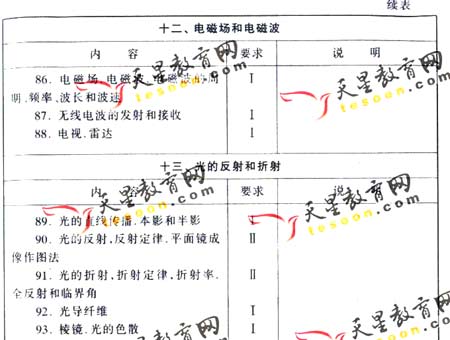 续表
十二、电磁场和电磁波
内 容 要求 说 明
86. 电磁场,电磁波,电磁波的周 Ⅰ
期、频率、波长和波速
87. 无线电波的发射和接收 Ⅰ
88. 电视、雷达 Ⅰ
十三、光的反射和折射
内 容 要求 说
89. 光的直线传播.本影和半影 Ⅰ
90. 光的反射,反射定律.平面镜成 Ⅱ
像作图法
91. 光的折射,折射定律,折射率. Ⅱ
全反射和临界角
92. 光导纤维 Ⅰ
93. 棱镜.光的色散 Ⅰ
天星教育网
tesoon.com
天星教育网
tesoon.com
天星教育网
tesoon.com
天星教育网
tesoon.com
天星教育网
天星教育网